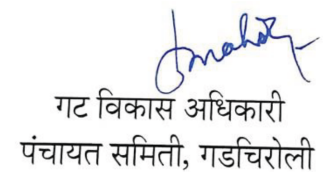 गट विकास अधिकारी
पंचायत समिती, गडचिरोली